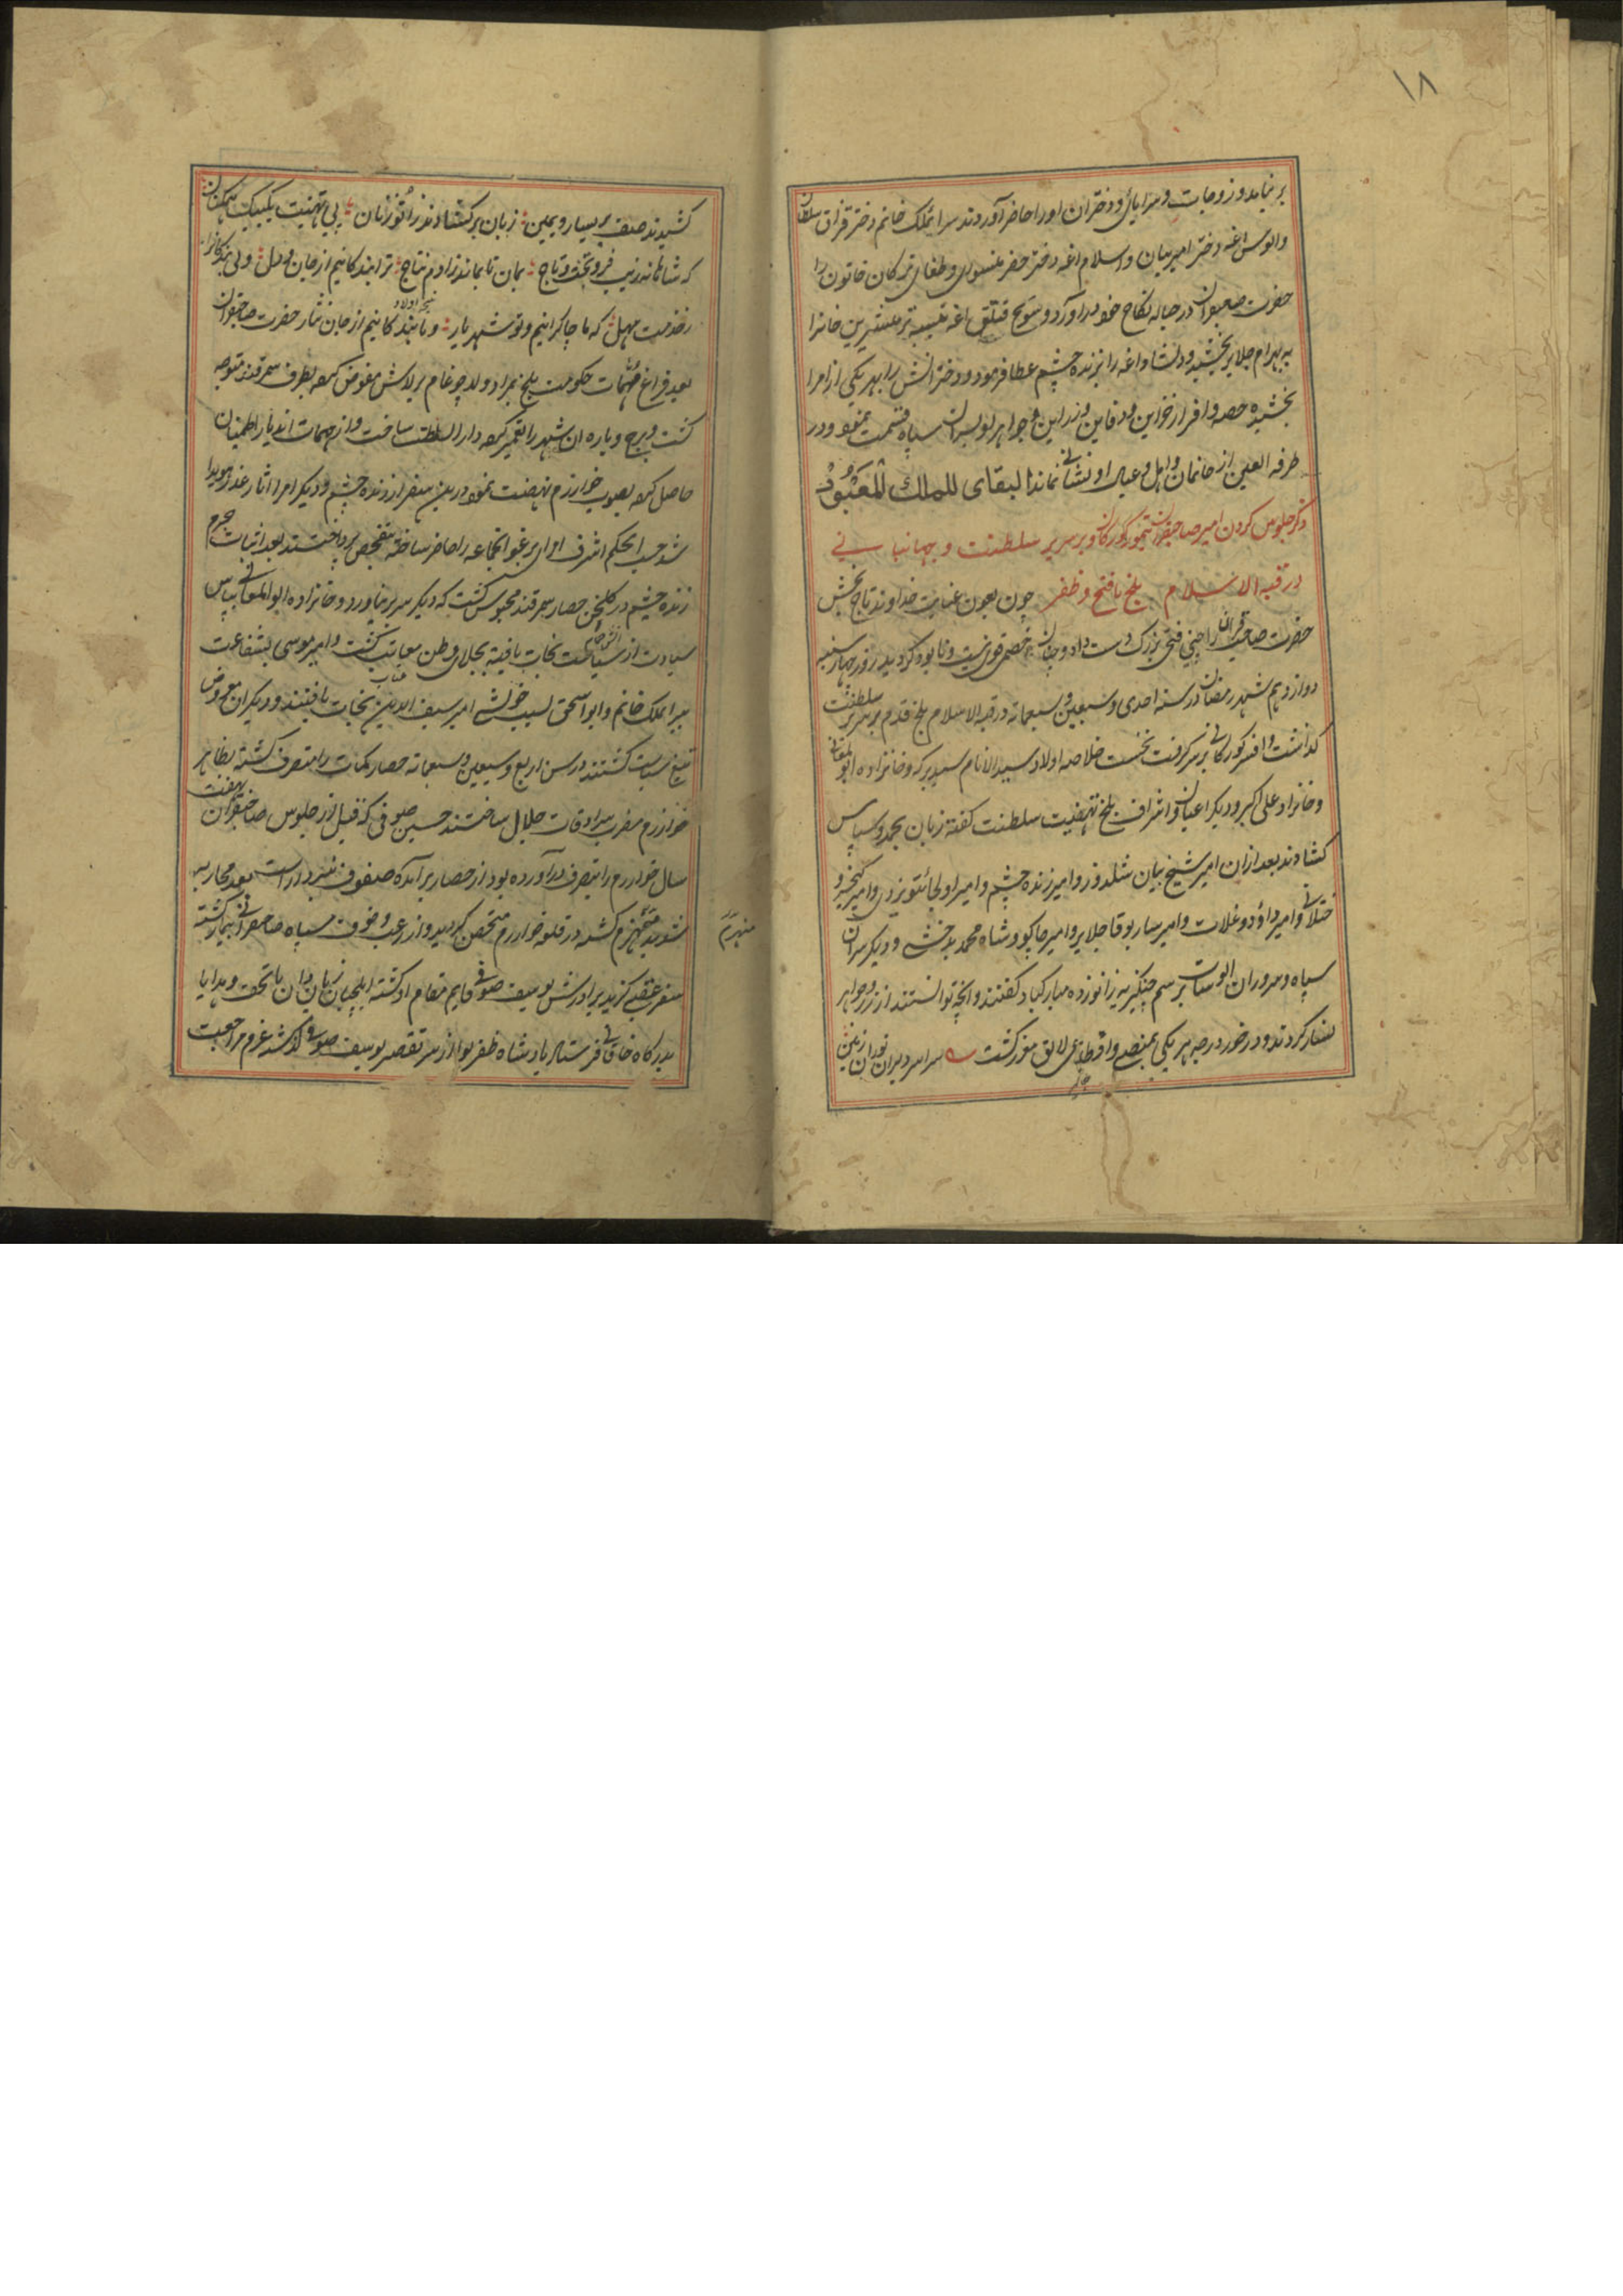 ۱۸
بر نیامد و زوجات و سرایای و دختران او را حاضر آوردند سرایملک خانم دختر قزان سلطان
والوس اغه دختر امیر بیان و اسلام اغه دختر خضر یسوری و طغای ترکان خاتون را
حضرت صاحبقران در حباله نکاح خود در آورد و سونج قتلق اغه
به بهرام جلایر بخشید و دلشاد اغه را بزنده چشم عطا فرمود و دخترانش را بهر یکی از امرا
بخشیده حصه وافر از خزاین و دفاین و جواهر او بسران سپاه قسمت نمود و در
طرفة العین از خانمان و اهل و عیال او نشانی نماند البقای للملک المعبود
ذکر جلوس کردن امیر صاحبقران تیمور کورکان بر سریر سلطنت و جهانبانی
در قبه الاسلام بلخ با فتح و ظفر چون بعون عنایت خداوند تاج بخش
حضرت صاحبقران را چنین فتحی بزرک دست داد و چنان خصمی قوی نیست و نابود کردید روز چهارشنبه
دوازدهم شهر رمضان در سنه احدی و سبعین و سبعمائه در قبه الاسلام بلخ قدم بر سریر سلطنت
کذاشت و افسر کورکانی بر سر کرفت نخست خلاصه اولاد سید الانام سید برکه و خانزاده ابو المعالی
و خانزاد علی اکبر و دیکر اعیان و اشراف بلخ تهنیت سلطنت کفته زبان بحمد و سپاس
کشادند بعد ازان امیر شیخ بیان سلدوز و امیر زنده چشم و امیر اولجائتو یزدی و امیر کیخسرو
ختلانی و امیر داؤد وغلات و امیر سار بوقا جلایر و امیر جاکو و شاه محمد بدخشی و دیکر سران
سپاه و سروران الوسات برسم چنکیزیه زانو زده مبارکباد کفتند و انچه توانستند از زر و جواهر
نثار کردند و در خور درجه هر یکی بمنصب و اقطاعی لایق مفرر کشت سراسر دلیران توران زمین
کشیدند صف بر یسار و یمین زبان بر کشادند زانو زنان پی تهنیت یکبیک همکنان
که شاها ز زیب فر و تخت و تاج بمان تا بماند ز ادم نتاج ترا بنده کانیم از جان و دل
ز خدمت مهل که ما چاکرانیم و تو شهریار و ما بنده کانیم از جان نثار حضرت صاحبقران
بعد فراغ مهمات حکومت بلخ بمراد ولد چوغام برلاس مفوض کرده بطرف سمرقند متوجه
کشت و برج و باره ان شهر را تعمیر کرده دار السلطنت ساخت و از مهمات اندیار اطمینان
حاصل کرده بصوب خوارزم نهضت نمود درین سفر از زنده چشم و دیکر امرا اثار غدر هویدا
شد حسب الحکم اشرف اوای یرغو انجماعه را حاضر ساخته بتفحص پرداختند بعد اثبات جرم
زنده چشم در کلخن حصار سمرقند محبوس کشت که دیکر سر بر نیاورد و خانزاده ابو المعالی بپاس
سیادت از سیاست نجات یافته بجلای وطن معاتب کشت و امیر موسی بشفاعت
سرایملک خانم و ابو اسحق بسبب خویشی امیر سیف الدین نجات یافتند و دیکران معروض
تیغ سیاست کشتند در سن اربع و سبعین و سبعمائه حصار کات را متصرف کشته بظاهر
خوارزم مضرب سرادقات جلال ساختند حسین صوفی که قبل از جلوس صاحبقران هفت
سال خوارزم را بتصرف در آورده بود از حصار بر آمده صفوف نبرد اراست بعد محاربه
شدید منهزم کشته در قلعه خوارزم متحصن کردید و از رعب و خوف سپاه صاحبقرانی بیمار کشته
منهزم
سفر عقبی کزید برادرش یوسف صوفی قایم مقام او کشته ایلچیان زبان دان با تحف و هدایا
بدرکاه خاقانی فرستاد پادشاه ظفر لوا از سر تقصیر یوسف صوفی کذشته عزم مراجعت